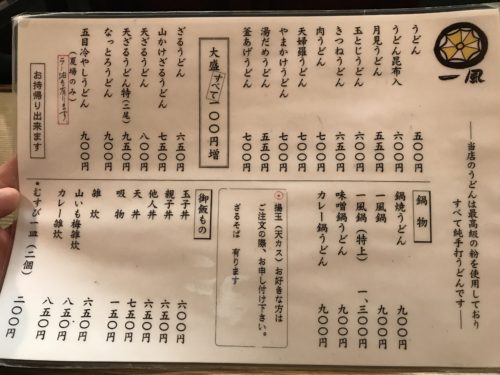 一風
——当店のうどんは最高級の粉を使用しており
すべて純手打うどんです——
うどん 五〇〇円
うどん昆布入
月見うどん
玉とじうどん
きつねうどん
肉うどん 七〇〇円
天婦羅うどん 七〇〇円
やまかけうどん 七〇〇円
湯だめうどん 五〇〇円
釜あげうどん
大盛すべて一〇〇円増
ざるうどん 六五〇円
山かけざるうどん 七五〇円
天ざるうどん 八〇〇円
天ざるうどん特(二尾) 九五〇円
なっとろうどん 九〇〇円
五目冷やしうどん 九〇〇円
(夏場のみ)
ラー油も有ります
お持帰り出来ます
鍋物
鍋焼うどん 九〇〇円
一風鍋 九〇〇円
一風鍋(特上) 一、三〇〇円
味噌鍋うどん 九〇〇円
カレー鍋うどん 九〇〇円
揚玉(天カス)お好きな方は
ご注文の際、お申し付け下さい。
ざるそば 有ります
御飯もの
玉子丼 六〇〇円
親子丼 六五〇円
他人丼 六五〇円
天丼 七五〇円
吸物 一五〇円
雑炊 六五〇円
山いも梅雑炊 八五〇円
カレー雑炊 八五〇円
*むすび一皿(二個) 二〇〇円